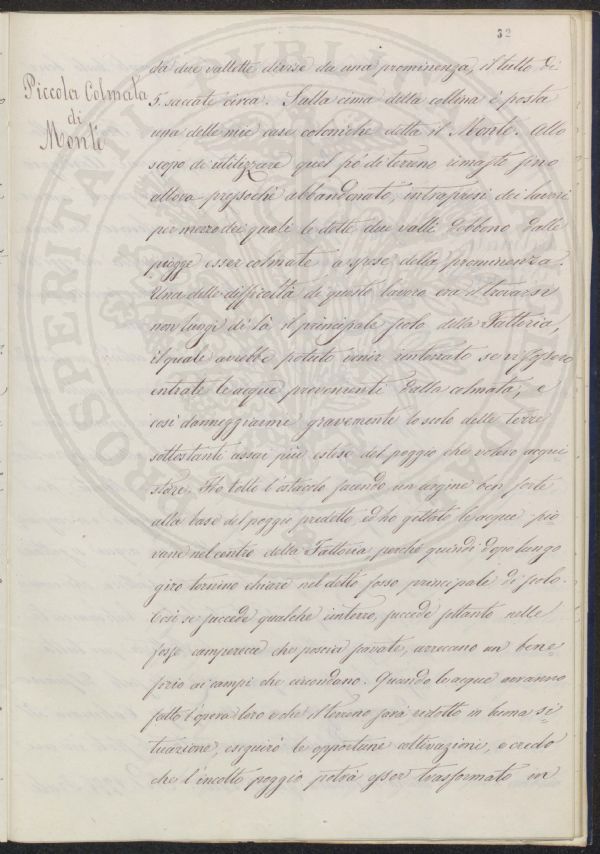 32
Piccola Colmata
di
Monti
da due vallette divise da una prominenza, il tutto di
5 saccate circa. Sulla cima della collina è posta
una delle mie case coloniche detta il Monte. Allo
scopo di utilizzare quel pò di terreno rimasto fino
allora pressochè abbandonato, intrapresi dei lavori
per mezzo dei quali le dette due valli debbono dalle
piogge esser colmate a spese della prominenza.
Una delle difficoltà di questo lavoro era il trovarsi
non lungi di là il principale scolo della Fattoria,
il quale avrebbe potuto venir interrato se vi fossero
entrate le acque provenienti dalla colmata; e
così danneggiarmi gravemente lo scolo delle terre
sottostanti assai più estese del poggio che volevo acqui=
stare. Ho tolto l'ostacolo facendo un argine ben forte
alla base del poggio predetto, ed ho gettato le acque pio=
vane nel centro della Fattoria, perchè quindi dopo lungo
giro tornino chiare nel detto fosso principale di scolo.
Così se succede qualche interro, succede soltanto nelle
fosse camperecce che poscia scavate, arrecano un bene=
fizio ai campi che circondano. Quando le acque avranno
fatto l'opera loro e che il terreno sarà ridotto in buona si=
tuazione, eseguirò le opportune coltivazioni, e credo
che l'incolto poggio potrà esser trasformato in